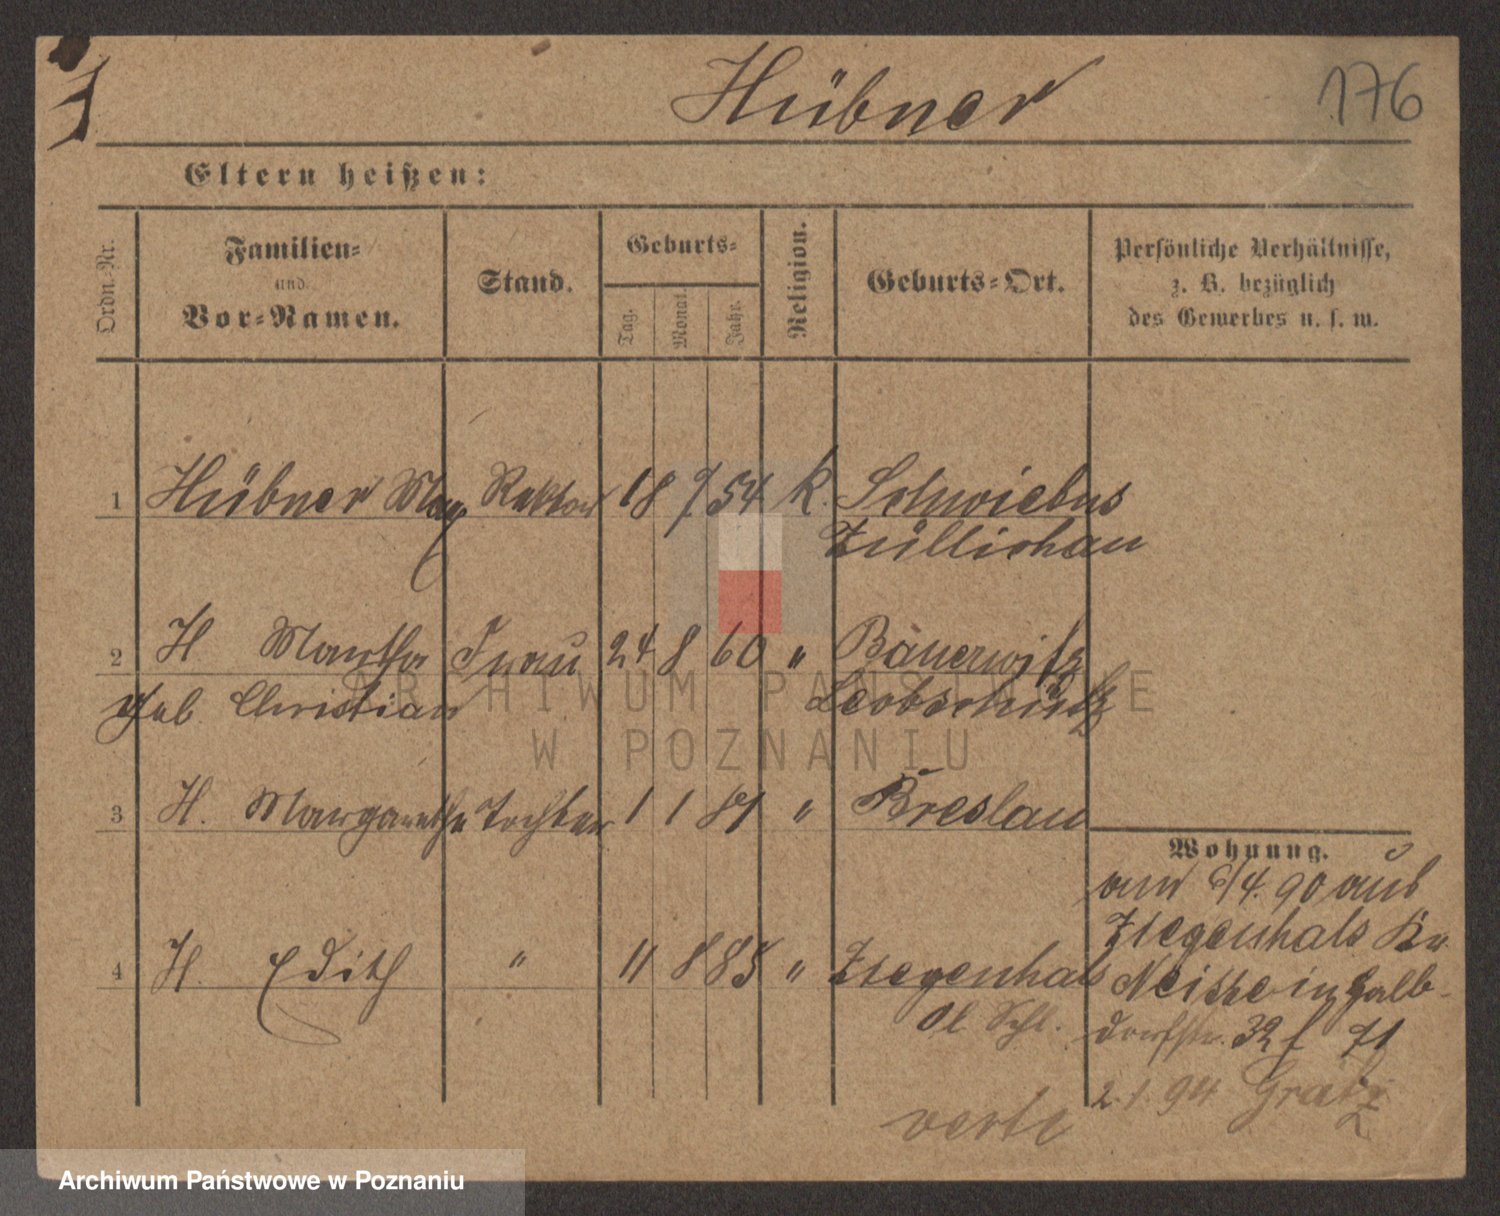 Hübner
176
Eltern heißen:
Ordn.-Nr.
Familien-
und
Vor-Namen.
Stand.
Geburts-
Tag.
Monat.
Jahr.
Religion.
Geburts-Ort.
Persönliche Verhältnisse,
z. B. bezüglich
des Gewerbes u. s. w.
1 Hübner Max Rektor 18 9 54 K. Schwiebus
Züllichau
2 H Martha Frau 24 8 60 " Bauerwitz
geb. Christian Leobschütz
ARCHIWUM PAŃSTWOWE
W POZNANIU
3 H. Margarethe Tochter 1 1 84 " Breslau
Wohnung.
4 H. Edith " 11 8 85 " Ziegenhals
Ol Schl.
4. 90 aus
Ziegenhals Kr.
Neisse in Halb-
dorfstr. 32
2. 1. 94 Grätz
verte
Archiwum Państwowe w Poznaniu